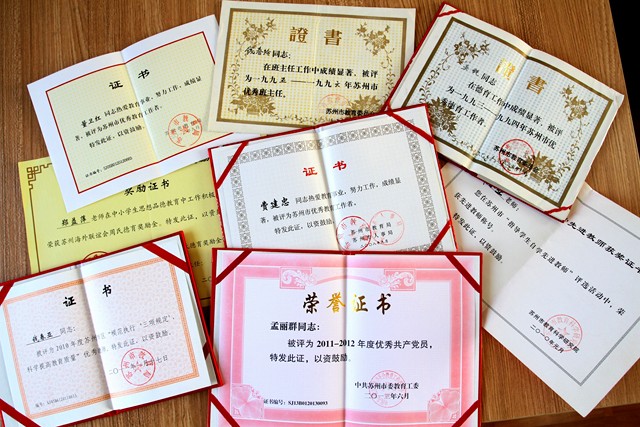 證書
同志:
在班主任工作中成绩显著,被评
为一九九五——一九九六年苏州市
优秀班主任。
苏州市教育委员会
證書
同志:
在德育工作中成绩显著,被评
为一九九三—一九九四年苏州市优
秀德育工作者。
苏州市教育委员会
证书
董卫红 同志热爱教育事业,努力工作,成绩显
著,被评为苏州市优秀教育工作者。
特发此证,以资鼓励。
证书
曹建忠 同志热爱教育事业,努力工作,成绩显
著,被评为苏州市优秀教育工作者。
特发此证,以资鼓励。
苏州市教育局
苏州市人事局
奖励证书
郑益萍 老师在中小学生思想品德教育中工作积极
荣获苏州海外联谊会周氏德育奖励金。特发此证,以资
先进教师获奖证
老师:
您在苏州市“指导学生自学先进教师”评选活动中,荣
获先进教师称号。
特发此证,以资鼓励。
苏州市教育科学研究院
二〇一〇年元月
证书
钱春燕 同志:
被评为2010年度苏州市“模范执行‘三项规定’,
科学提高教育质量”优秀
特发此证,以资鼓励。
荣誉证书
孟丽群同志:
被评为2011-2012年度优秀共产党员,
特发此证,以资鼓励。
中共苏州市委教育工委
证书编号:SJ13B0120130093
二〇一三年六月